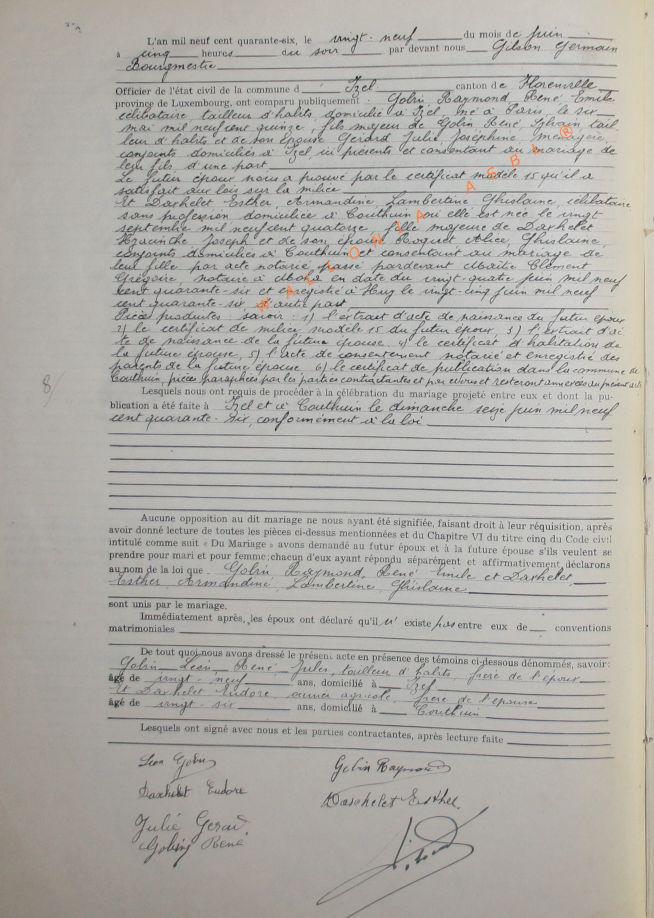 L'an mil neuf cent quarante-six, le vingt-neuf du mois de juin
à cinq heures du soir par devant nous Gilson Germain
Bourgmestre
Officier de l'état civil de la commune d' Izel canton de Florenville
province de Luxembourg, ont comparu publiquement: Gobin Raymond René Emile
célibataire, tailleur d'habits, domicilié à Izel, né à Paris, le six
mai mil neuf cent quinze, fils majeur de Gobin, René, Sylvain, tail
leur d'habits et de son épouse Gerard Julie, Joséphine, ménagère
conjoints domiciliés à Izel, ici présents et consentant au mariage de
leur fils, d'une part
Le futur époux nous a prouvé par le certificat modèle 15 qu'il a
satisfait aux lois sur la milice
Et Daxhelet Esther, Armandine, Lambertine Ghislaine, célibataire
sans profession domiciliée à Couthuin où elle est née le vingt
septembre mil neuf cent quatorze, fille majeure de Daxhelet
Hyacinthe Joseph et de son épouse Alice, Ghislaine,
conjoints domiciliés à Couthuin et consentant au mariage de
leur fille par acte notarié passé pardevant Maître Clément
Grégoire, notaire à en date du vingt-quatre juin mil neuf
cent quarante-six et enregistré à Huy le vingt-cinq juin mil neuf
cent quarante-six d'autre part
Pièces produites: savoir: 1) l'extrait d'acte de naissance du futur époux
2) le certificat de milice modèle 15 du futur époux, 3) l'extrait d'ac
te de naissance de la future épouse. 4) le certificat d'habitation de
la future épouse, 5) l'acte de consentement notarié et enregistré des
parents de la future épouse. 6) le certificat de publication dans la commune de
Couthuin, pièces paraphées par les parties contractantes et par et resteront annexées au présent acte
Lesquels nous ont requis de procéder à la célébration du mariage projeté entre eux et dont la pu-
8/
blication a été faite à Izel et à Couthuin le dimanche seize juin mil neuf
cent quarante-six, conformément à la loi
Aucune opposition au dit mariage ne nous ayant été signifiée, faisant droit à leur réquisition, après
avoir donné lecture de toutes les pièces ci-dessus mentionnées et du Chapitre VI du titre cinq du Code civil
intitulé comme suit « Du Mariage » avons demandé au futur époux et à la future épouse s'ils veulent se
prendre pour mari et pour femme; chacun d'eux ayant répondu séparément et affirmativement, déclarons
au nom de la loi que Gobin Raymond, René Emile et Daxhelet,
Esther Armandine, Lambertine, Ghislaine
sont unis par le mariage.
Immédiatement après, les époux ont déclaré qu'il n'existe pas entre eux de conventions
matrimoniales
De tout quoi nous avons dressé le présent acte en présence des témoins ci-dessous dénommés, savoir:
Gobin Léon René, Jules, tailleur d'habits, frère de l'époux
âgé de vingt-neuf ans, domicilié à Izel
Et Daxhelet Eudore, ouvrier agricole, frère de l'épouse
âgé de vingt-six ans, domicilié à Couthuin
Lesquels ont signé avec nous et les parties contractantes, après lecture faite
Léon Gobin Gobin Raymond
Daxhelet Eudore Daxhelet Esther.
Julie Gerard
Gobin René